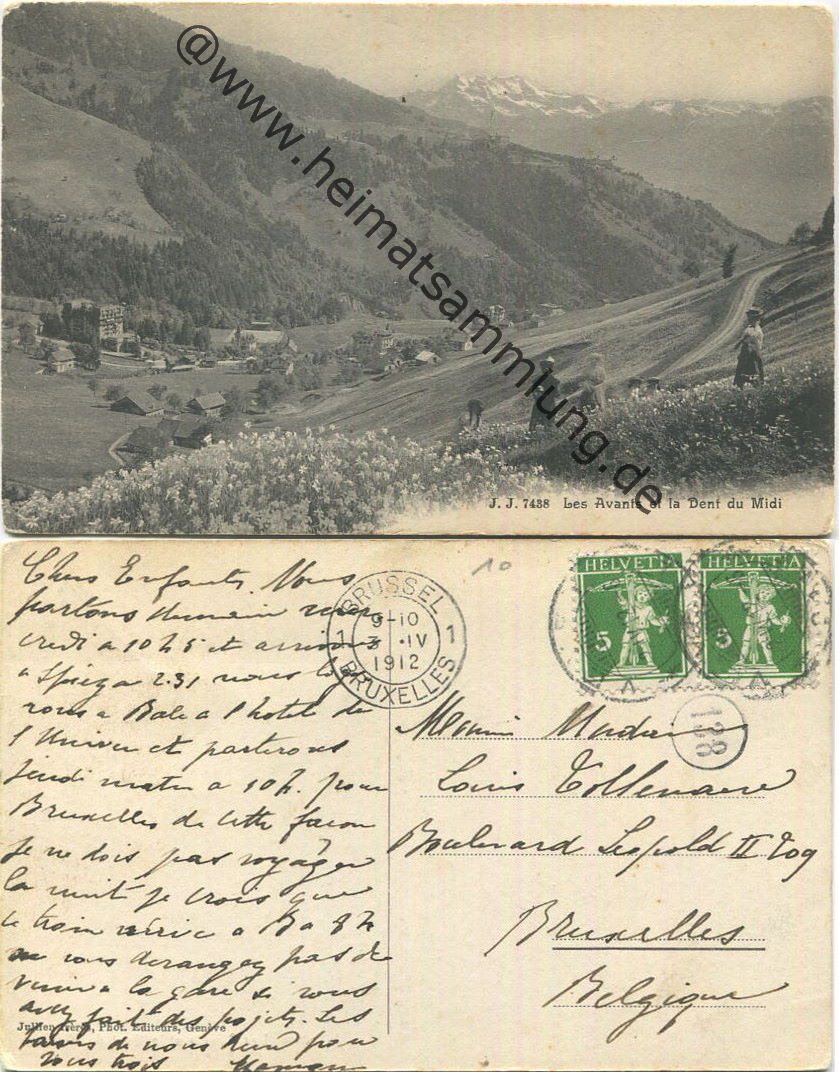 @www.heimatsammlung.de
J. J. 7438 Les Avants et la Dent du Midi
Chers Enfants. Nous
partons demain mer
credi a 10 h 5 et
a Spiez a 2.31 nous
rons a Bale a l'hotel de
l'Univer et parterons
jeudi matin a 10 h. pour
Bruxelles de cette facon
je ne dois pas voyager
la nuit je crois que
le train arrive a B a 8 h
ne vous derangez pas de
venir a la gare si vous
avez fait des projets. Les
baisers de nous deux pour
vous trois Maman
Jullien frères, Phot. Editeurs, Genève
BRUSSEL
9-10
1 3 ·IV 1
1912
BRUXELLES
10
HELVETIA HELVETIA
5 5
138
Madame
Louis Tollenaere
Boulevard Leopold II 209
Bruxelles
Belgique